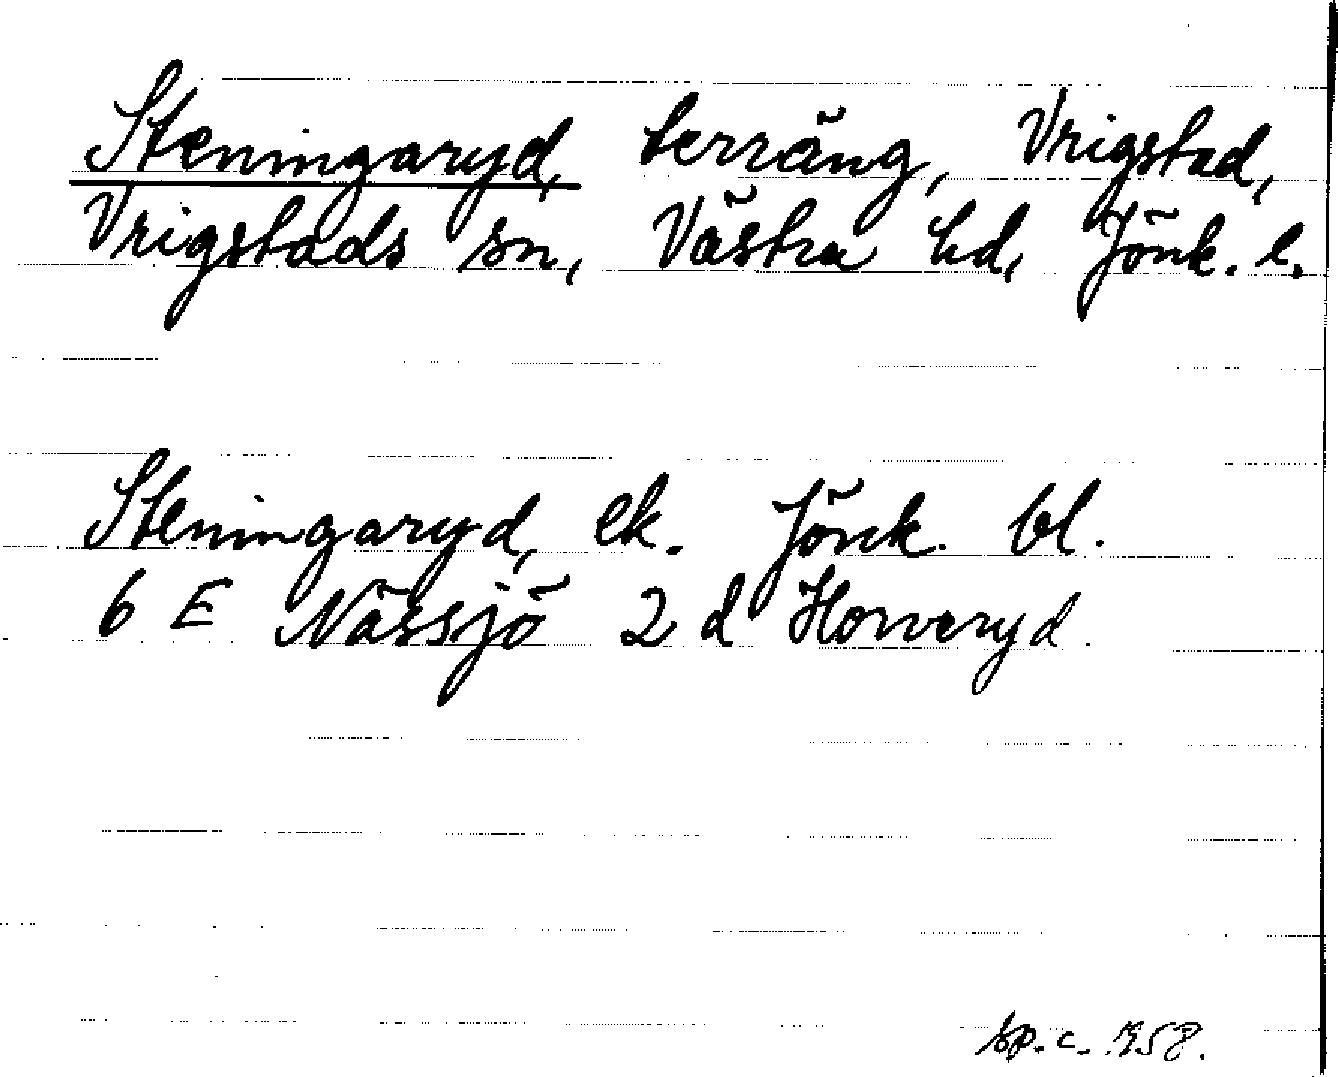 Steningaryd, terräng, Vrigstad,
Vrigstads sn, Västra hd, Jönk. l.
Steningaryd, ek. Jönk. bl.
6 E Nässjö 2 d Horveryd.
sp.c. 1958.